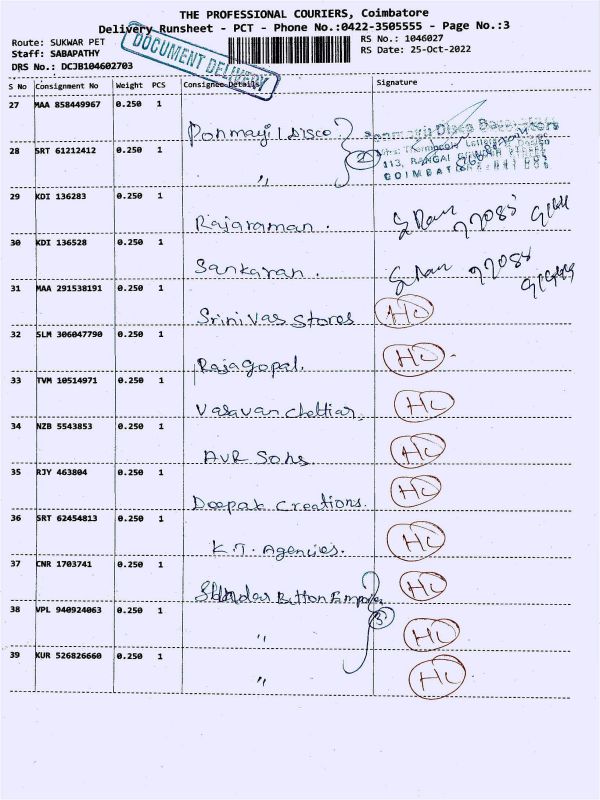 THE PROFESSIONAL COURIERS, Coimbatore
Delivery Runsheet - PCT - Phone No.:0422-3505555 - Page No.:3
Route: SUKWAR PET
RS No.: 1046027
Staff: SABAPATHY
RS Date: 25-Oct-2022
DRS No.: DCJB104602703
DOCUMENT DELIVERY
S No Consignment No Weight PCS Consignee Details Signature
27 MAA 858449967 0.250 1
Ponmayil Disco
28 SRT 61212412 0.250 1
" 2
113, RANGAI
COIMBAT
29 KDI 136283 0.250 1
Rajaraman.
30 KDI 136528 0.250 1
Sankaran.
31 MAA 291538191 0.250 1
Srinivas Stores HC
32 SLM 306047790 0.250 1
Rajagopal. HC
33 TVM 10514971 0.250 1
Vasavan Chettiar, HC
34 NZB 5543853 0.250 1
AVR Sons HC
35 RJY 463804 0.250 1
Deepak Creations. HC
36 SRT 62454813 0.250 1
K.T. Agencies. HC
37 CNR 1703741 0.250 1
Button HC
38 VPL 940924063 0.250 1
" 3 HC
39 KUR 526826660 0.250 1
" HC